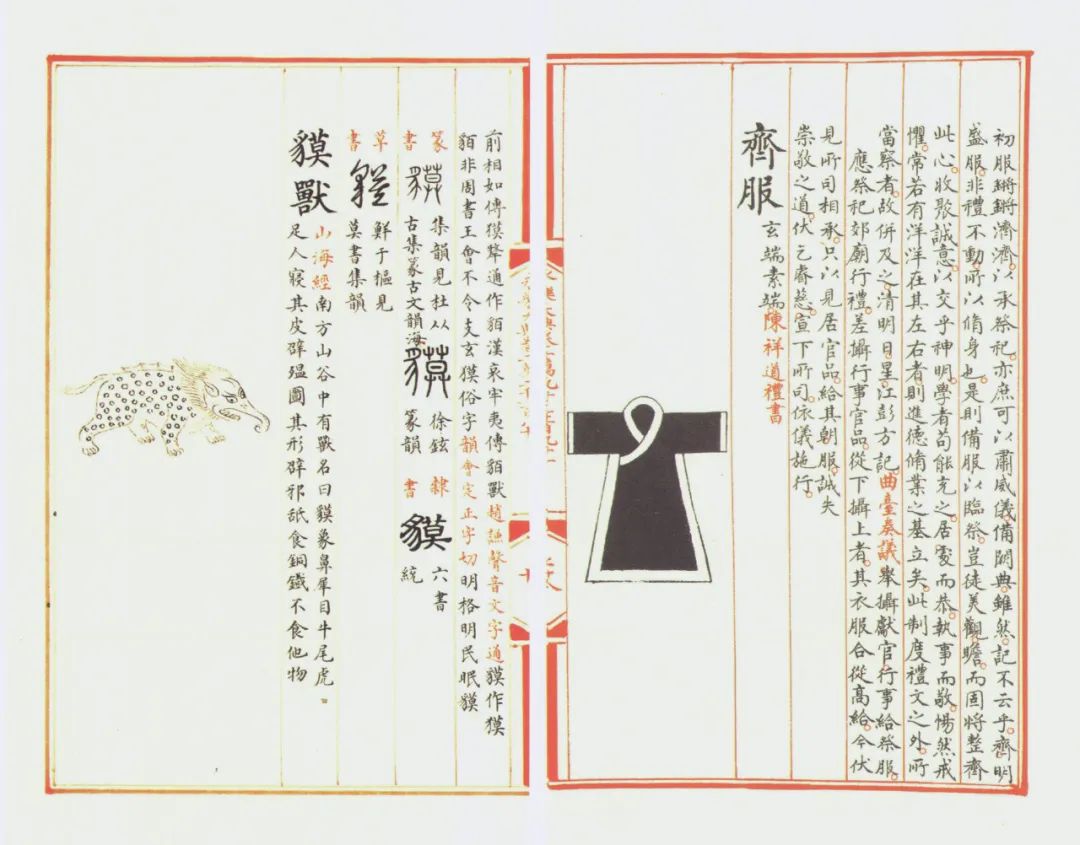 初服鏘鏘濟濟以承祭祀。亦庶可以肅威儀備闕典。雖然。記不云乎。齊明
盛服。非禮不動。所以脩身也。是則備服以臨祭。豈徒美觀瞻。而固將整齊
此心。收聚誠意。以交乎神明。學者苟能充之。居處而恭。執事而敬。惕然戒
懼。常若有洋洋在其左右者。則進德脩業之基立矣。此制度禮文之外。所
當察者。故併及之。清明日星江彭方記曲臺奏議舉攝獻官。行事給祭服。
應祭祀郊廟行禮。差攝行事官品。從下攝上者。其衣服合從高給。今伏
見所司相承。只以見居官品。給其朝服。誠失
崇敬之道。伏乞睿慈。宣下所司。依儀施行。
齊服玄端素端陳祥道禮書
前相如傳獏犛通作貊漢哀牢夷傳貊獸趙謙聲音文字通貘作獏
貊非周書王會不令支玄獏俗字韻會定正字切明格明民眠貘
篆書貘集韻見杜从古集篆古文韻海貘徐鉉篆韻隸書貘六書統
草書貘鮮于樞見莫書集韻
貘獸山海經南方山谷中有獸名曰貘象鼻犀目牛尾虎
足人寢其皮辟瘟圖其形辟邪舐食銅鐵不食他物